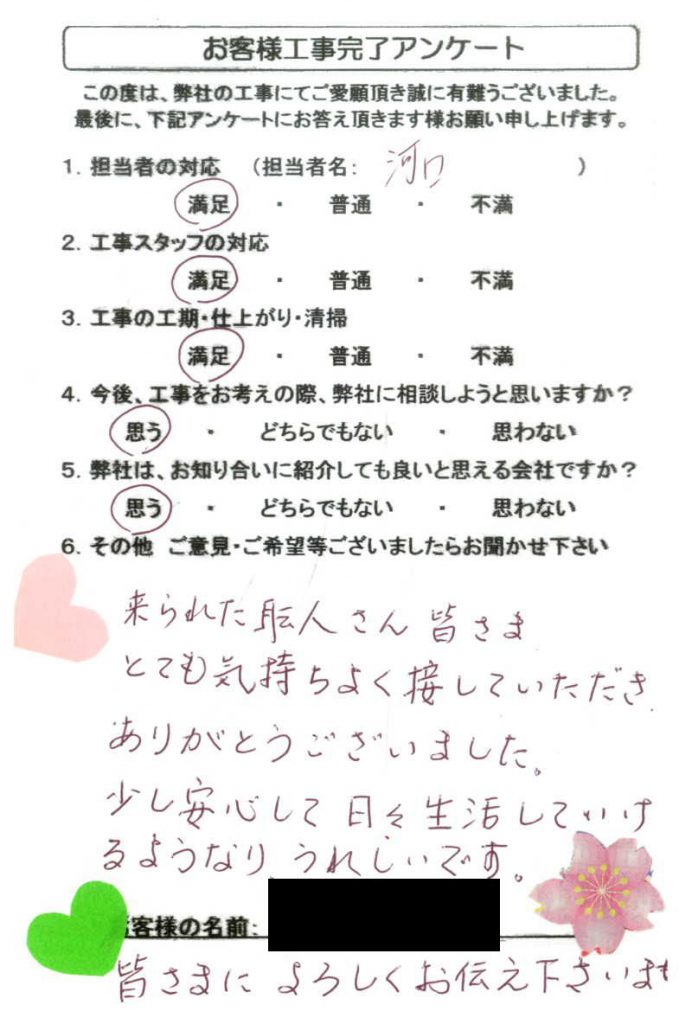 お客様工事完了アンケート
この度は、弊社の工事にてご愛顧頂き誠に有難うございました。
最後に、下記アンケートにお答え頂きます様お願い申し上げます。
1. 担当者の対応 (担当者名: 河口 )
満足 ・ 普通 ・ 不満
2. 工事スタッフの対応
満足 ・ 普通 ・ 不満
3. 工事の工期・仕上がり・清掃
満足 ・ 普通 ・ 不満
4. 今後、工事をお考えの際、弊社に相談しようと思いますか?
思う ・ どちらでもない ・ 思わない
5. 弊社は、お知り合いに紹介しても良いと思える会社ですか?
思う ・ どちらでもない ・ 思わない
6. その他 ご意見・ご希望等ございましたらお聞かせ下さい
来られた転人さん 皆さま
とても気持ちよく接していただき
ありがとうございました。
少し安心して日々生活していけ
るようなり、うれしいです。
客様の名前:
皆さまに よろしくお伝え下さいませ